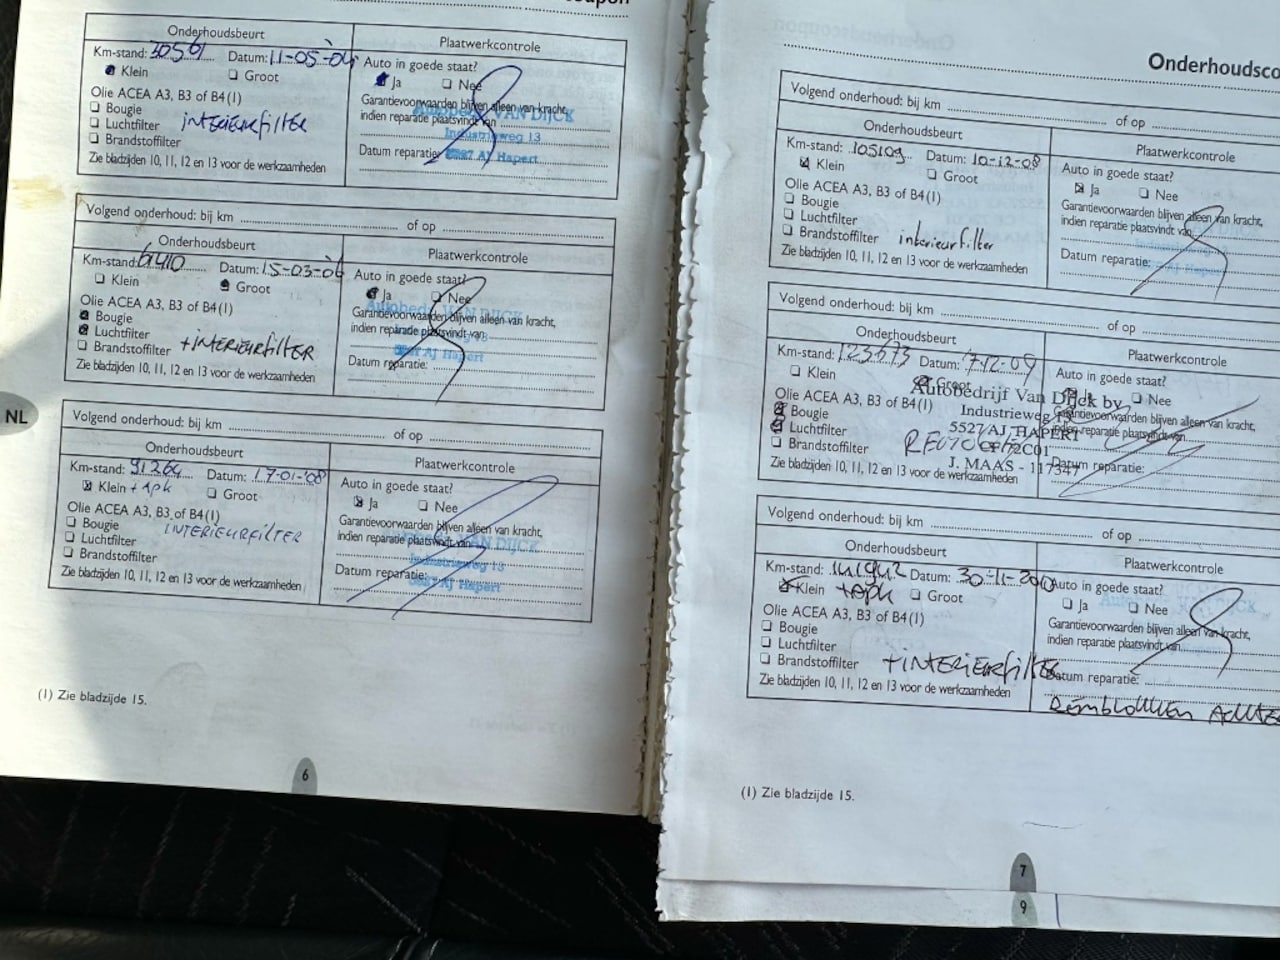 Onderhoudsbeurt
Plaatwerkcontrole
Km-stand: 30561 Datum: 11-05-04
Auto in goede staat?
Klein Groot
Ja Nee
Olie ACEA A3, B3 of B4(1)
Garantievoorwaarden blijven alleen van kracht,
indien reparatie plaatsvindt van
Bougie
Luchtfilter INTERIEURFILTER
Brandstoffilter
Autobedrijf VAN DIJCK
Industrieweg 13
5527 AJ Hapert
Datum reparatie:
Zie bladzijden 10, 11, 12 en 13 voor de werkzaamheden
Volgend onderhoud: bij km of op
Onderhoudsbeurt
Plaatwerkcontrole
Km-stand: 61410 Datum: 15-03-06
Auto in goede staat?
Klein Groot
Ja Nee
Olie ACEA A3, B3 of B4(1)
Garantievoorwaarden blijven alleen van kracht,
indien reparatie plaatsvindt van
Bougie
Luchtfilter
Brandstoffilter +INTERIEURFILTER
AJ Hapert
Datum reparatie:
Zie bladzijden 10, 11, 12 en 13 voor de werkzaamheden
NL
Volgend onderhoud: bij km of op
Onderhoudsbeurt
Plaatwerkcontrole
Km-stand: 91264 Datum: 17-01-'08
Auto in goede staat?
Klein + apk Groot
Ja Nee
Olie ACEA A3, B3 of B4(1)
Garantievoorwaarden blijven alleen van kracht,
indien reparatie plaatsvindt van
Bougie INTERIEURFILTER
Luchtfilter
Brandstoffilter
VAN DIJCK
Industrieweg 13
5527 AJ Hapert
Datum reparatie:
Zie bladzijden 10, 11, 12 en 13 voor de werkzaamheden
(1) Zie bladzijde 15.
6
Onderhoudsco
Volgend onderhoud: bij km of op
Onderhoudsbeurt
Plaatwerkcontrole
Km-stand: 105109 Datum: 10-12-08
Auto in goede staat?
Klein Groot
Ja Nee
Olie ACEA A3, B3 of B4(1)
Garantievoorwaarden blijven alleen van kracht,
indien reparatie plaatsvindt van
Bougie
Luchtfilter
Brandstoffilter interieurfilter
Datum reparatie:
Zie bladzijden 10, 11, 12 en 13 voor de werkzaamheden
Volgend onderhoud: bij km of op
Onderhoudsbeurt
Plaatwerkcontrole
Km-stand: 123573 Datum: 7-12-09
Auto in goede staat?
Klein Groot
Nee
Olie ACEA A3, B3 of B4(1)
Garantievoorwaarden blijven alleen van kracht,
Bougie
Luchtfilter
Brandstoffilter
Autobedrijf Van Dijck bv
Industrieweg
5527 AJ HAPERT
J. MAAS - 117347
Datum reparatie:
Zie bladzijden 10, 11, 12 en 13 voor de werkzaamheden
Volgend onderhoud: bij km of op
Onderhoudsbeurt
Plaatwerkcontrole
Km-stand: 141942 Datum: 30-11-2010
Auto in goede staat?
Klein +apk Groot
Ja Nee
Olie ACEA A3, B3 of B4(1)
Garantievoorwaarden blijven alleen van kracht,
indien reparatie plaatsvindt van
Bougie
Luchtfilter
Brandstoffilter +INTERIEURFILTER
Datum reparatie:
Zie bladzijden 10, 11, 12 en 13 voor de werkzaamheden
Remblokken Achte
(1) Zie bladzijde 15.
7
9